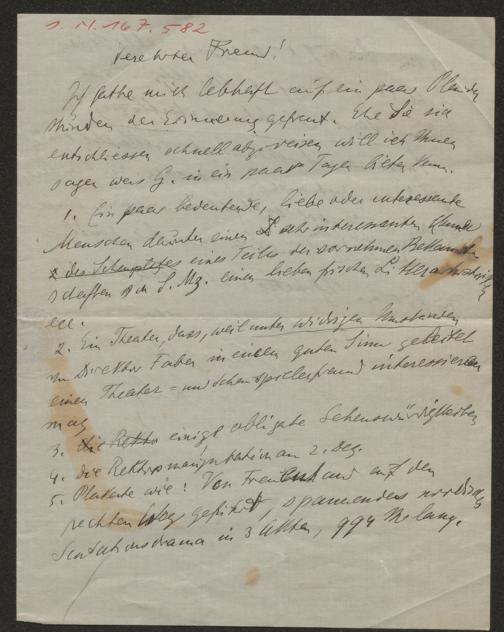 I. N. 167.582
Verehrter Freund!
Ich hatte mich lebhaft auf ein paar Plauder
stunden der Erinnerung gefreut. Ehe Sie sich
entschliessen schnell abzureisen will ich Ihnen
sagen was G. in ein paar Tagen bieten kann.
1. Ein paar bedeutende, liebe oder interessante
Menschen darunter einen sehr interessanten
eines Teiles der vornehmen Bekannt
schaften S. Mg. einen lieben frischen
ec.
2. Ein Theater, dass, weil unter widrigen Umständen
im Direktor in einem guten Sinn geleitet
einen Theater = und Schauspielerfreund interessieren
mag
3. einige obligate Sehenswürdigkeiten
4. die Rektorsinauguration am 2. Dez.
5. Plakate wie: Von Freundeshand auf den
rechten Weg geführt, spannendes nordisches
Sensationsdrama in 3 Akten, 994 M lang.